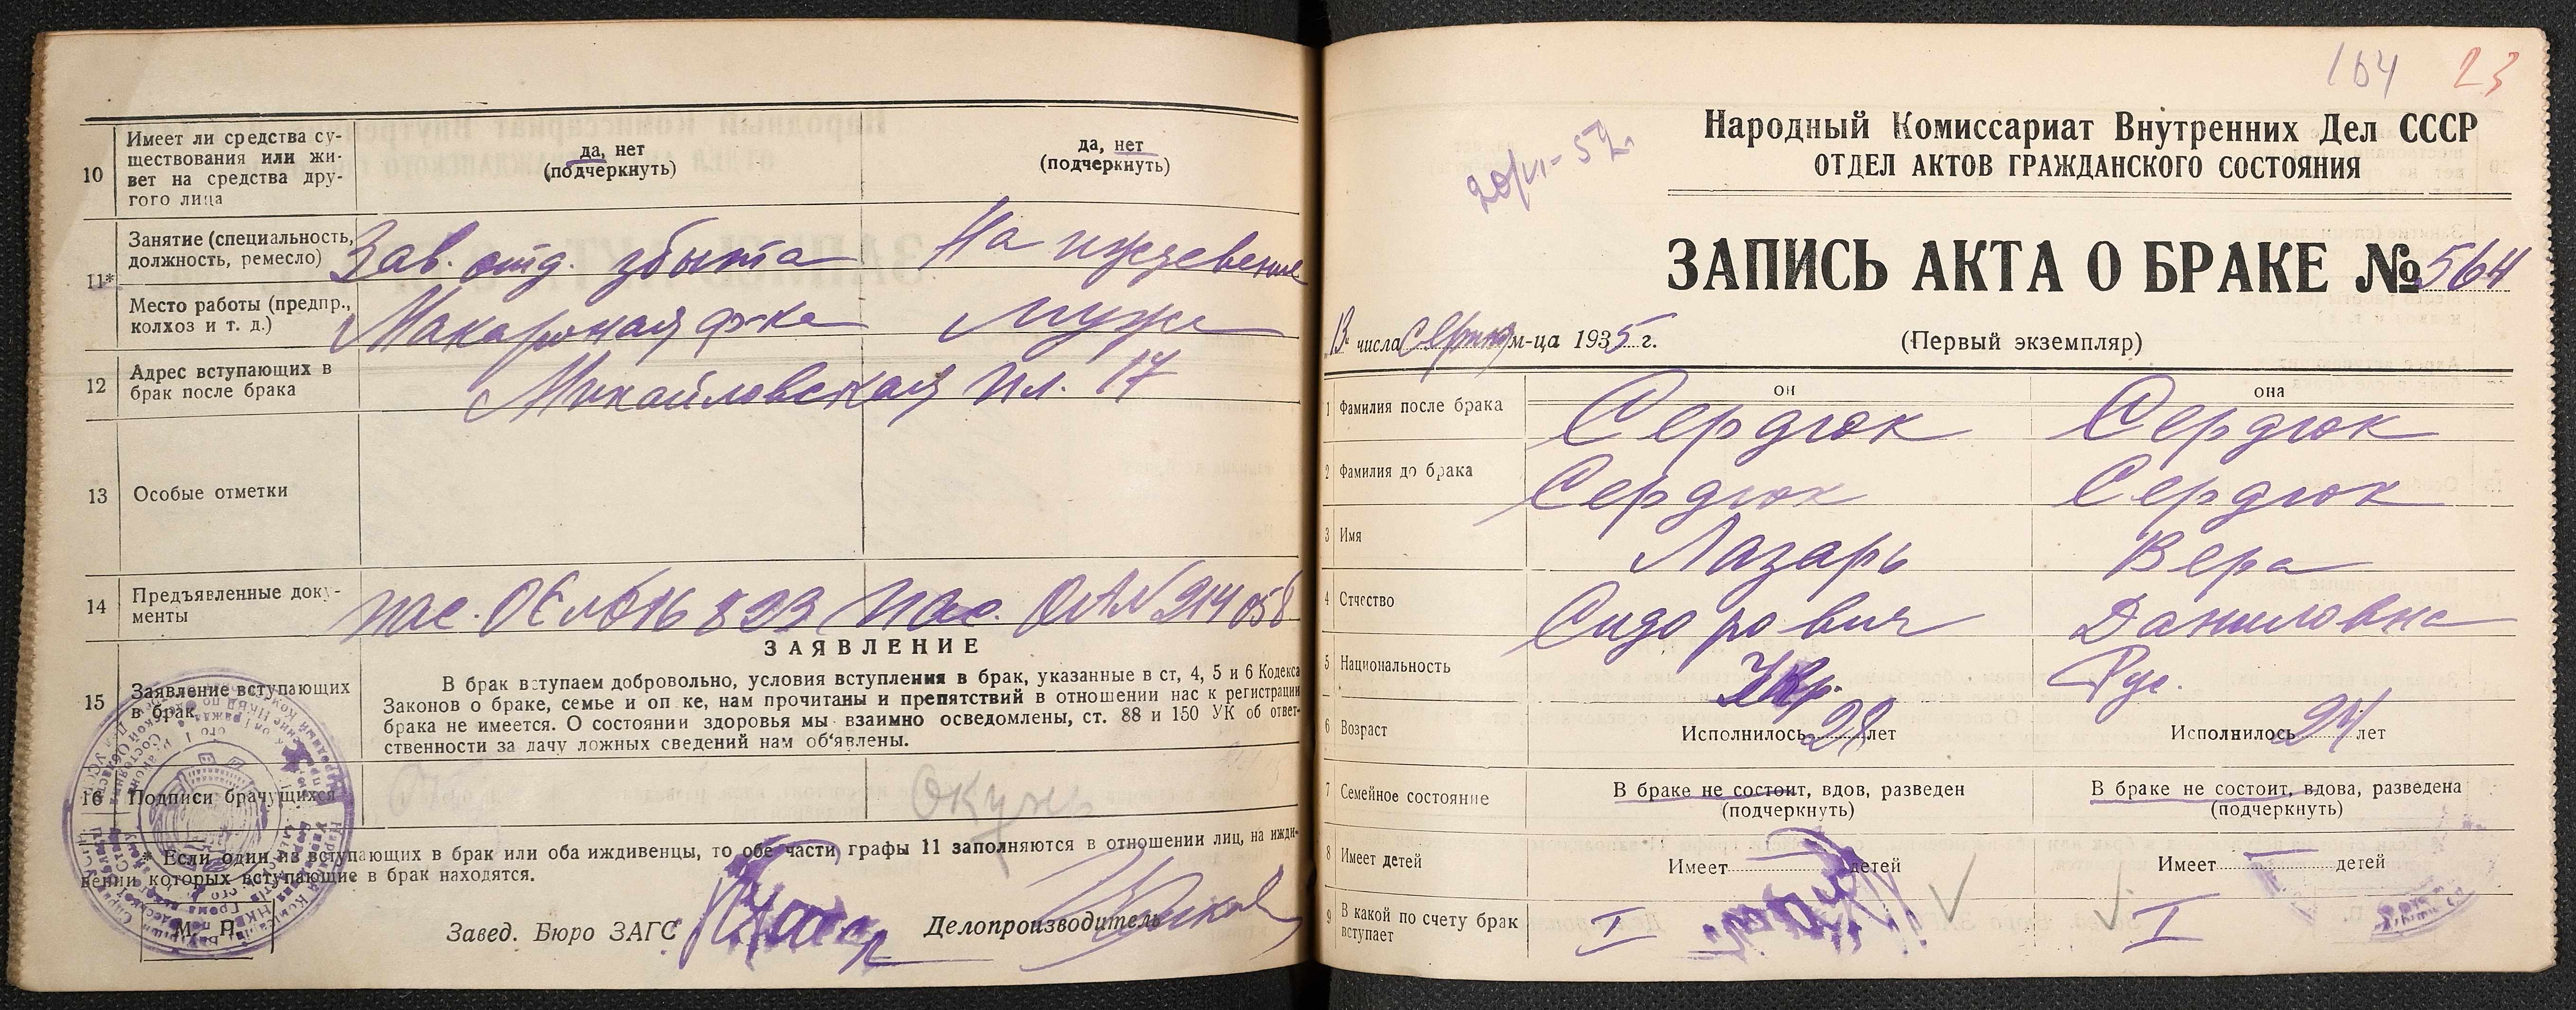 10
Имеет ли средства су-
ществования или жи-
вет на средства дру-
гого лица
да, нет
(подчеркнуть)
да, нет
(подчеркнуть)
11*
Занятие (специальность,
должность, ремесло)
Зав. отд. збыта
На иждевение
Место работы (предпр.,
колхоз и т. д.)
Макароная ф-ка
мужа
12
Адрес вступающих в
брак после брака
Михайловская пл. 17
13
Особые отметки
14
Предъявленные доку-
менты
пас.
823
пас.
214058
ЗАЯВЛЕНИЕ
15
Заявление вступающих
в брак
В брак вступаем добровольно, условия вступления в брак, указанные в ст, 4, 5 и 6 Кодекса
Законов о браке, семье и оп ке, нам прочитаны и препятствий в отношении нас к регистрации
брака не имеется. О состоянии здоровья мы взаимно осведомлены, ст. 88 и 150 УК об ответ-
ственности за дачу ложных сведений нам об'явлены.
16
Подписи брачущихся
* Если один из вступающих в брак или оба иждивенцы, то обе части графы 11 заполняются в отношении лиц, на ижди-
вении которых вступающие в брак находятся.
М. П.
Завед. Бюро ЗАГС
Делопроизводитель
164
23
20/VI-57г.
Народный Комиссариат Внутренних Дел СССР
ОТДЕЛ АКТОВ ГРАЖДАНСКОГО СОСТОЯНИЯ
ЗАПИСЬ АКТА О БРАКЕ № 564
13 числа Серпня м-ца 1935 г.
(Первый экземпляр)
он
она
1
Фамилия после брака
Сердюк
Сердюк
2
Фамилия до брака
Сердюк
Сердюк
3
Имя
Лазарь
Вера
4
Отчество
Сидорович
Даниловна
5
Национальность
Укр.
Рус.
6
Возраст
Исполнилось 28 лет
Исполнилось 24 лет
7
Семейное состояние
В браке не состоит, вдов, разведен
(подчеркнуть)
В браке не состоит, вдова, разведена
(подчеркнуть)
8
Имеет детей
Имеет — детей
Имеет — детей
9
В какой по счету брак
вступает
I
I